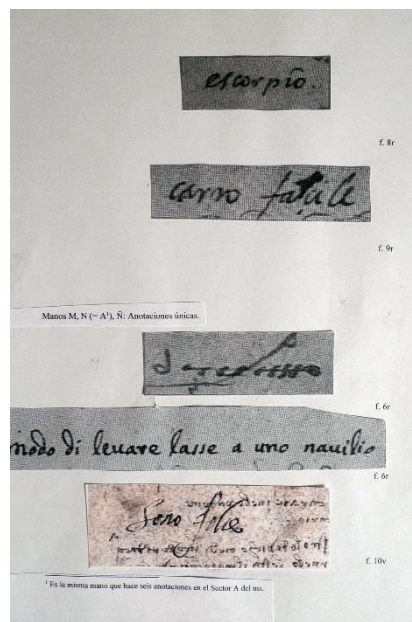 escorpiō.
f. 8r
carro facile
f. 9r
Manos M, N (= A¹), Ñ: Anotaciones únicas.
f. 6r
modo di leuare lasse a uno nauilio
f. 6r
Sono folie
f. 10v
¹ Es la misma mano que hace seis anotaciones en el Sector A del ms.